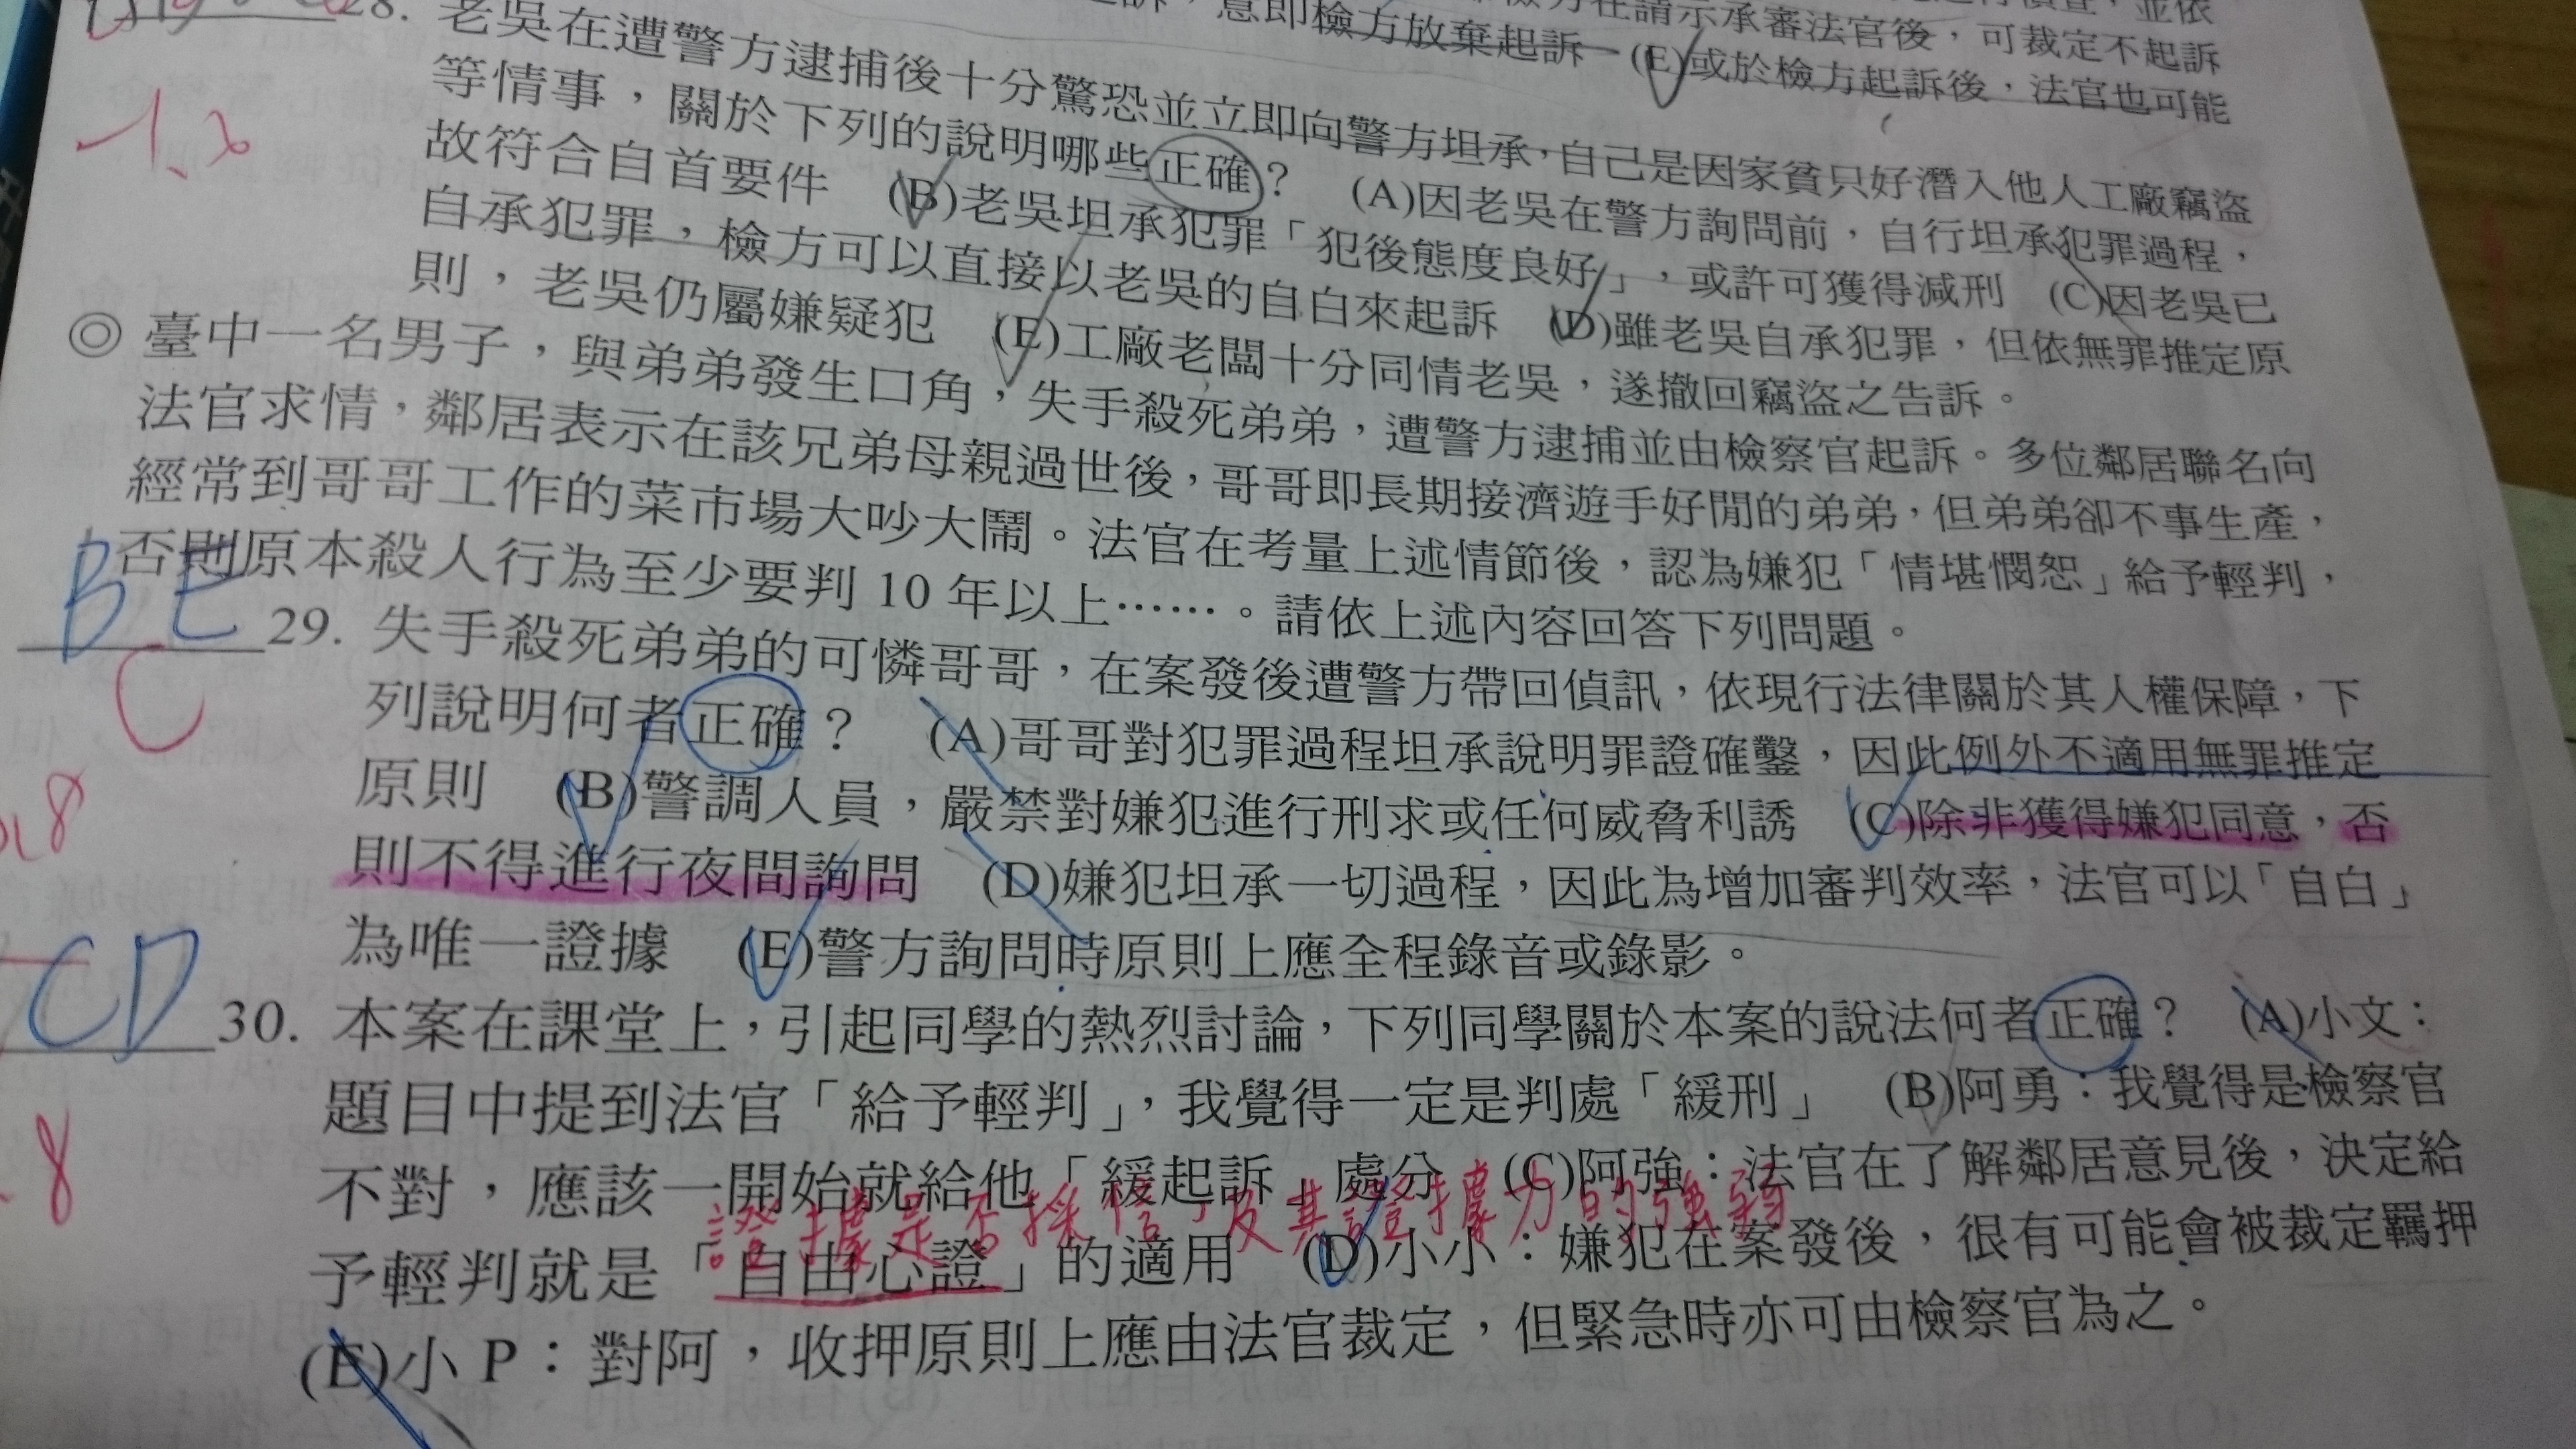 在請示承審法官後，可裁定不起訴
意即檢方放棄起訴 (E)或於檢方起訴後，法官也可能
28. 老吳在遭警方逮捕後十分驚恐並立即向警方坦承，自己是因家貧只好潛入他人工廠竊盜
等情事，關於下列的說明哪些正確？ (A)因老吳在警方詢問前，自行坦承犯罪過程，
故符合自首要件 (B)老吳坦承犯罪「犯後態度良好」，或許可獲得減刑 (C)因老吳已
自承犯罪，檢方可以直接以老吳的自白來起訴 (D)雖老吳自承犯罪，但依無罪推定原
則，老吳仍屬嫌疑犯 (E)工廠老闆十分同情老吳，遂撤回竊盜之告訴。
◎ 臺中一名男子，與弟弟發生口角，失手殺死弟弟，遭警方逮捕並由檢察官起訴。多位鄰居聯名向
法官求情，鄰居表示在該兄弟母親過世後，哥哥即長期接濟遊手好閒的弟弟，但弟弟卻不事生產，
經常到哥哥工作的菜市場大吵大鬧。法官在考量上述情節後，認為嫌犯「情堪憫恕」給予輕判，
否則原本殺人行為至少要判 10 年以上……。請依上述內容回答下列問題。
BE
C
29. 失手殺死弟弟的可憐哥哥，在案發後遭警方帶回偵訊，依現行法律關於其人權保障，下
列說明何者正確？ (A)哥哥對犯罪過程坦承說明罪證確鑿，因此例外不適用無罪推定
原則 (B)警調人員，嚴禁對嫌犯進行刑求或任何威脅利誘 (C)除非獲得嫌犯同意，否
則不得進行夜間詢問 (D)嫌犯坦承一切過程，因此為增加審判效率，法官可以「自白」
為唯一證據 (E)警方詢問時原則上應全程錄音或錄影。
CD
30. 本案在課堂上，引起同學的熱烈討論，下列同學關於本案的說法何者正確？ (A)小文：
題目中提到法官「給予輕判」，我覺得一定是判處「緩刑」 (B)阿勇：我覺得是檢察官
不對，應該一開始就給他「緩起訴」處分 (C)阿強：法官在了解鄰居意見後，決定給
證據是否採信，及其證據力的強弱
予輕判就是「自由心證」的適用 (D)小小：嫌犯在案發後，很有可能會被裁定羈押
(E)小 P：對阿，收押原則上應由法官裁定，但緊急時亦可由檢察官為之。